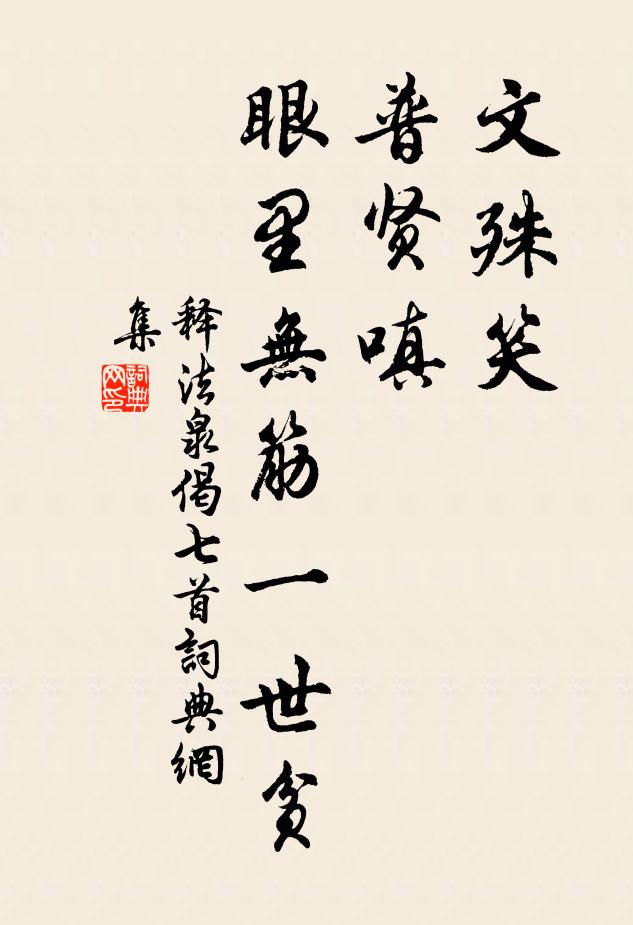 文殊笑
普贤嗔
眼里無筋一世貧
释法泉偈七首詞典網
集
詞典
网印